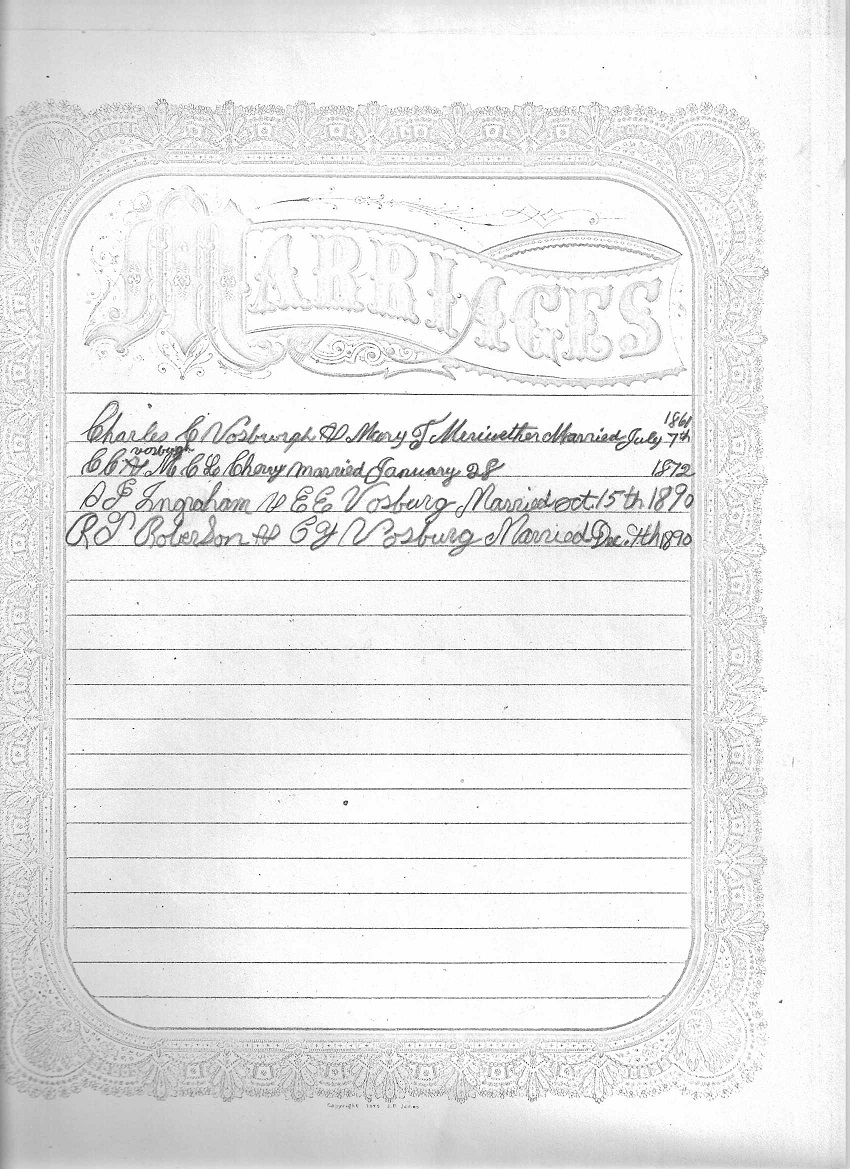 MARRIAGES
1861
Charles C Vosburgh & Mary T Meriwether Married July 7th
vosbugh
C C & M C L Cherry married January 28 1872
Ingraham & E E Vosburg Married oct. 15th 1890
R T Roberson & C Y Vosburg Married Dec. 1890
Copyright J.P. Jones